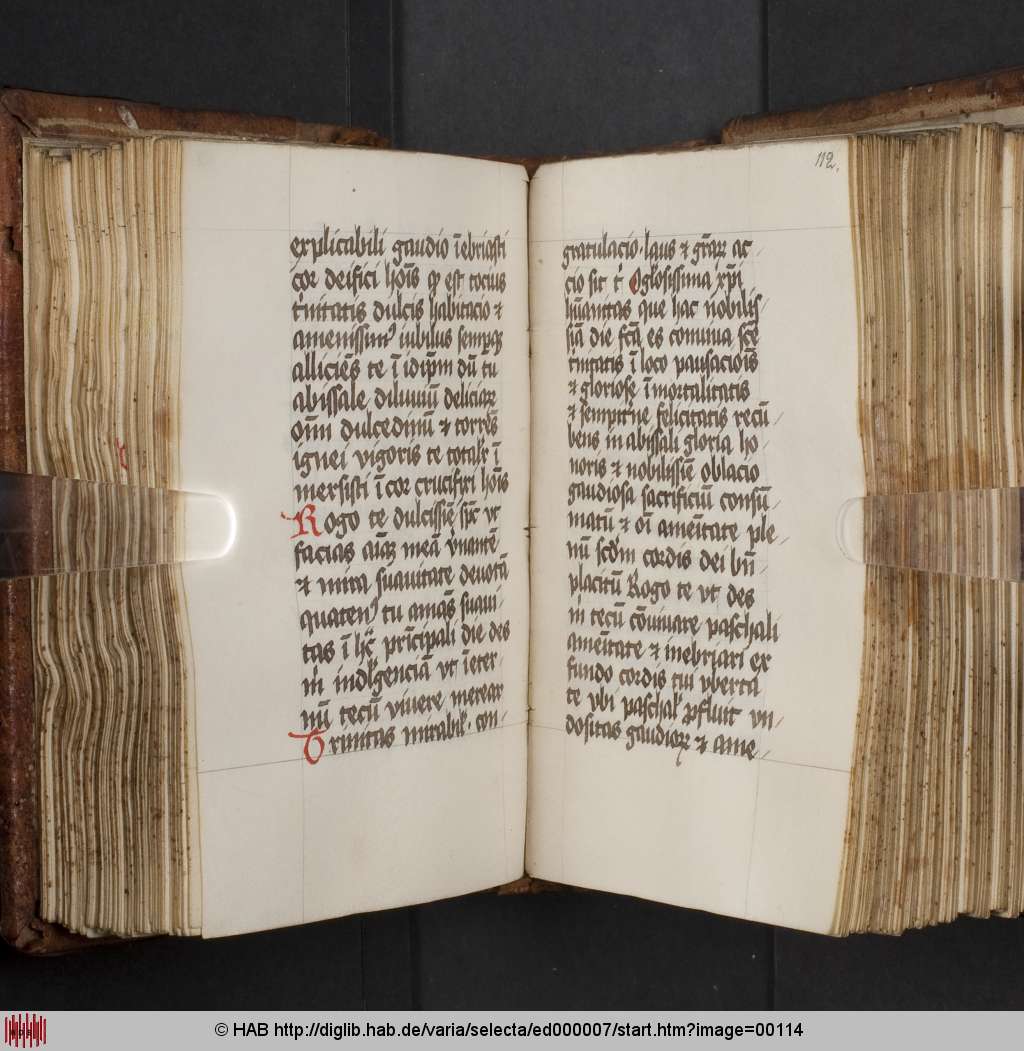 explicabili gaudio īebriasti
cor deifici hoīs qͥ est tocius
tͥnitatis dulcis habitacio ⁊
amenissimꝰ iubilus sempqꝫ
alliciēs te ī idip̄m dū tu
abissale diluuiū deliciaꝝ
oīm dulcedinū ⁊ torrēs
ignei vigoris te totalr̄ ī
mersisti ī cor crucifixi hoīs
Rogo te dulcissīe sp̄c vt
facias aīaꝫ meā vnanīē
⁊ mira suauitate deuotā
quatenꝰ tu amās suaui
tas ī hͦ pͥncipali die des
m̄ indl̓genciā vt īeter-
nū tecū viuere merear
Trinitas mirabil̓ . con-
112.
gratulacio . laus ⁊ gr̄aꝝ ac
cio sit tͥ O gl̓osissima xp̄i
hūanitas que hac nobilis
siā die fc̄a es conuiua sc̄e
tͥnitatis ī loco pausacioīs
⁊ gloriose īmortalitatis
⁊ sempit̓ne felicitatis recū
bens in abissali gloria ho
noris ⁊ nobilissīe oblacio
gaudiosa sacrificiū consū
matū ⁊ oī amēitate ple
nū scd̄m cordis dei bn̄
placitū Rogo te vt des
m̄ tecū cōuiuare paschali
amēitate ⁊ inebriari ex
fundo cordis tui vberta
te vbi paschal̓ ꝓfluit vn
dositas gaudioꝝ ⁊ ame
© HAB http://diglib.hab.de/varia/selecta/ed000007/start.htm?image=00114